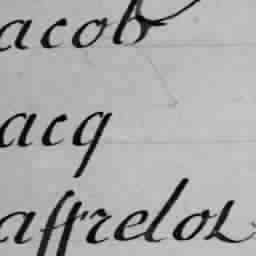 acob
acq
affrelot